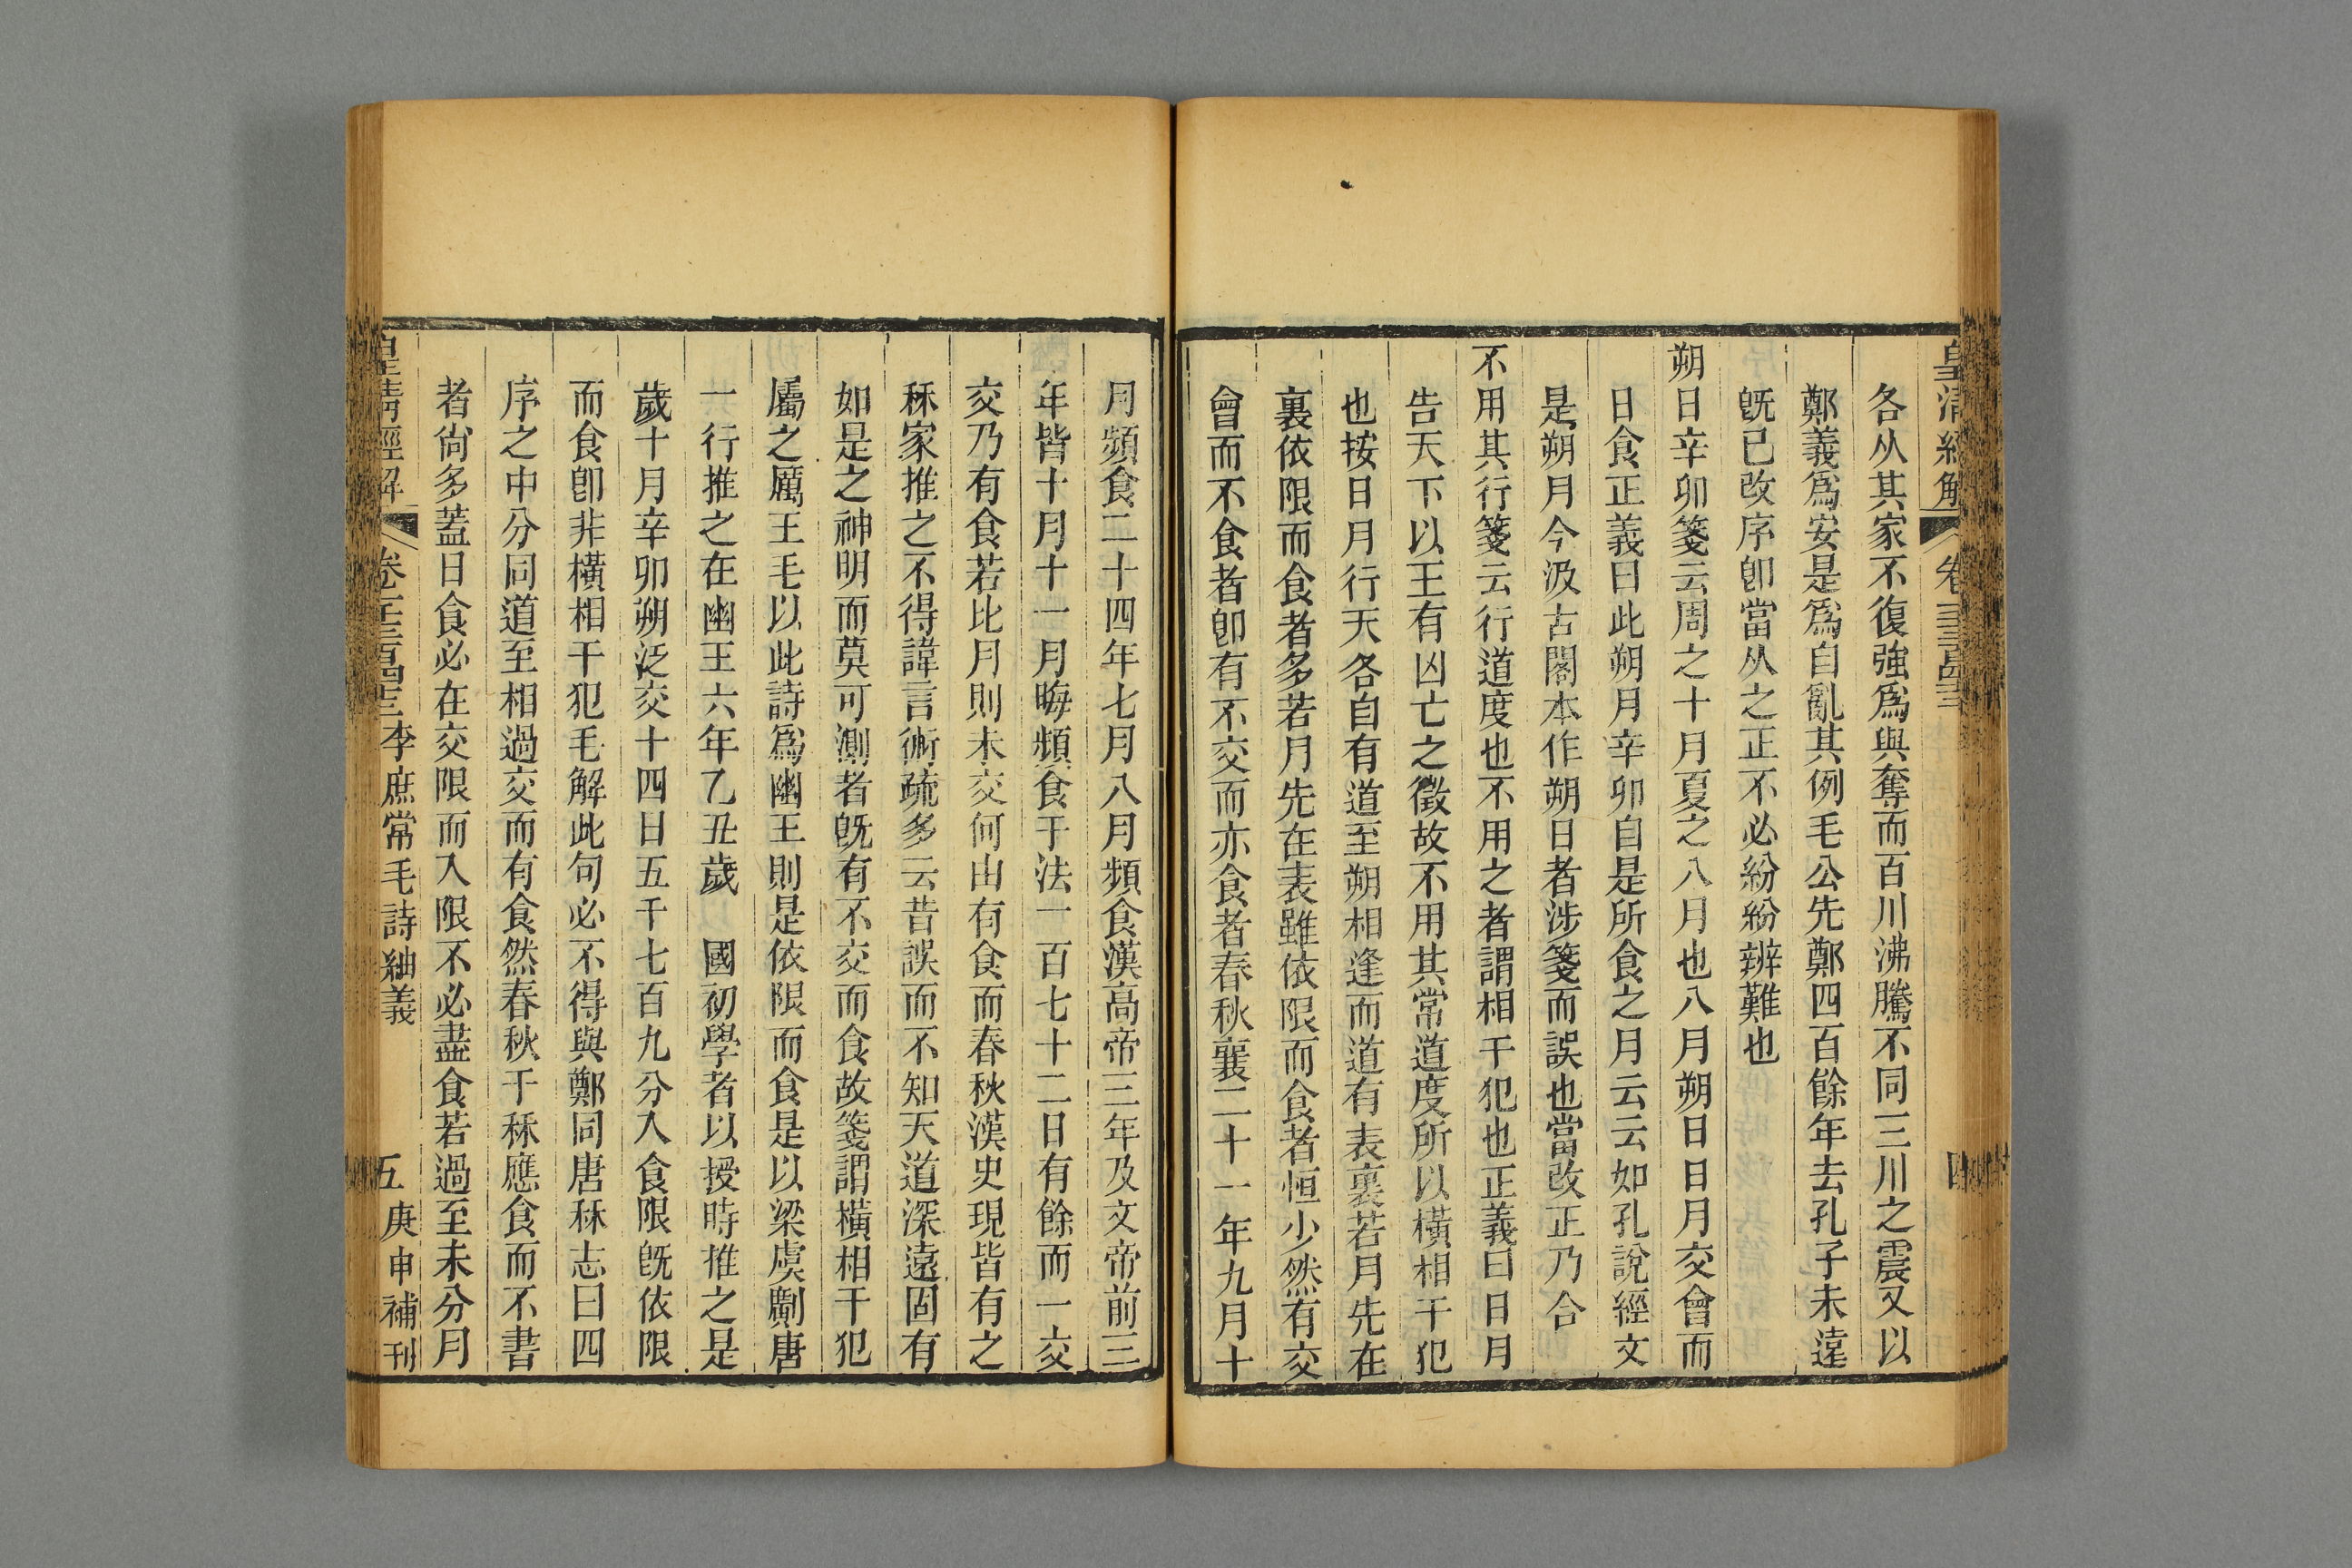 皇清經解 卷 四
各从其家不復強爲與奪而百川沸騰不同三川之震又以
鄭義爲安是爲自亂其例毛公先鄭四百餘年去孔子未遠
旣已改序卽當从之正不必紛紛辨難也
朔日辛卯箋云周之十月夏之八月也八月朔日日月交會而
日食正義曰此朔月辛卯自是所食之月云云如孔說經文
是朔月今汲古閣本作朔日者涉箋而誤也當改正乃合
不用其行箋云行道度也不用之者謂相干犯也正義曰日月
告天下以王有凶亡之徵故不用其常道度所以橫相干犯
也按日月行天各自有道至朔相逢而道有表裏若月先在
裏依限而食者多若月先在表雖依限而食者恒少然有交
會而不食者卽有不交而亦食者春秋襄二十一年九月十
月頻食二十四年七月八月頻食漢高帝三年及文帝前三
年皆十月十一月晦頻食于法一百七十二日有餘而一交
交乃有食若比月則未交何由有食而春秋漢史現皆有之
秝家推之不得諱言術疏多云昔誤而不知天道深遠固有
如是之神明而莫可測者旣有不交而食故箋謂橫相干犯
屬之厲王毛以此詩爲幽王則是依限而食是以梁虞劆唐
一行推之在幽王六年乙丑歲 國初學者以授時推之是
歲十月辛卯朔泛交十四日五千七百九分入食限旣依限
而食卽非橫相干犯毛解此句必不得與鄭同唐秝志曰四
序之中分同道至相過交而有食然春秋干秝應食而不書
者尙多蓋日食必在交限而入限不必盡食若過至未分月
皇清經解 卷一千三百四十三 李庶常毛詩紬義 五 庚申補刊